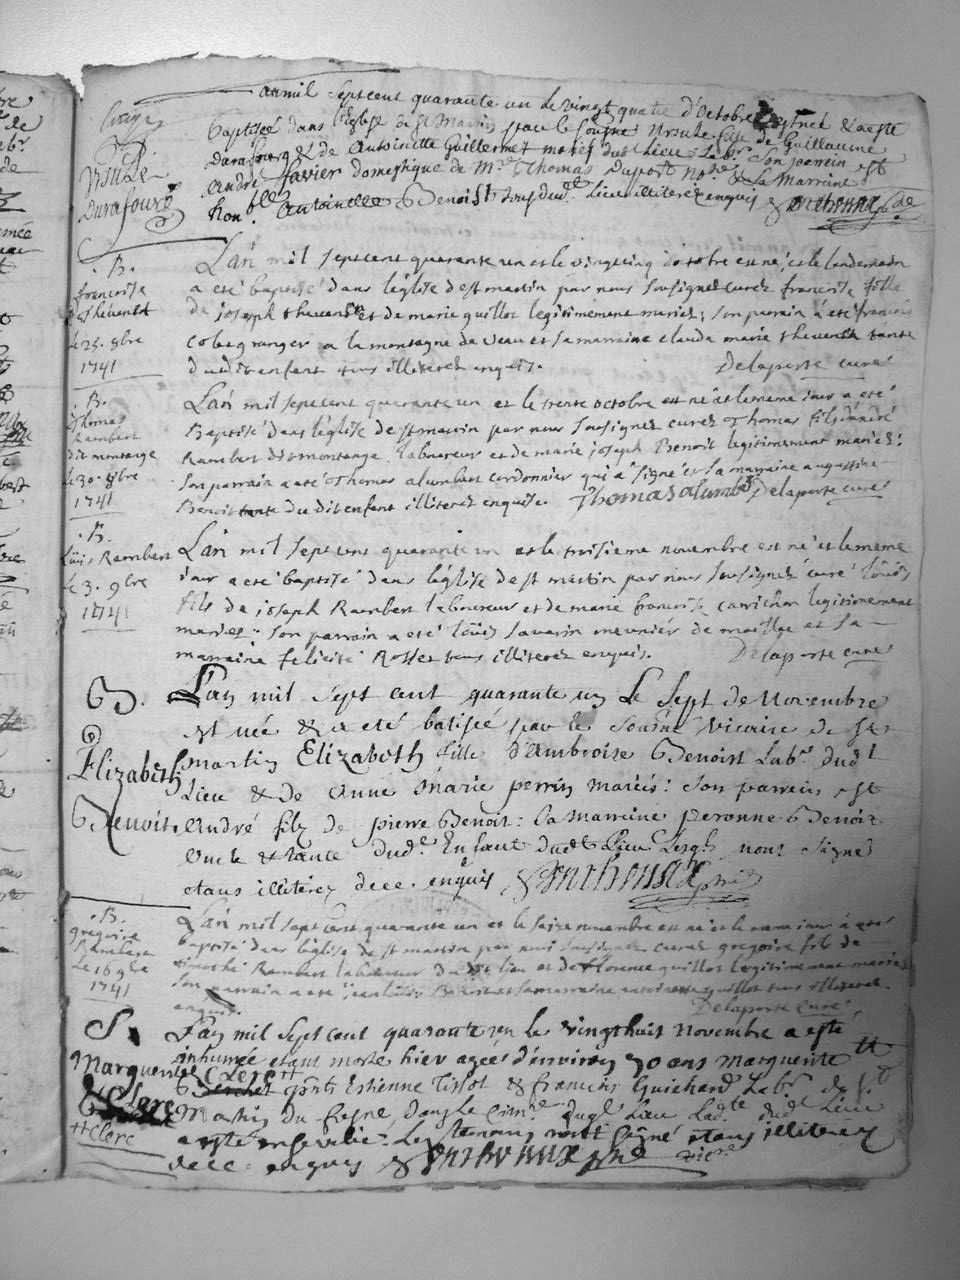 L'an mil sept cent quarante un le vingt quatre d'Octobre est née & a esté
baptisée dans l'Eglise de St Martin par le Soussigné Ursule fille de Guillaume
Durafourg & de Antoinette Guillermet mariés dudt Lieu Labr. Son parrein est
André Javier domestique de Mre Thomas Duport & La Marreine
honble Antoinette Benoist dudt Lieu illiterés enquis
Ursule
Durafourg
.B.
francoise
Thevenet
le 25. 8bre
1741
L'an mil sept cent quarante un et le vingt cinq doctobre est née, et le landemain
a eté baptisé dans leglise de st martin par nous soussignez curez francoise fille
de joseph thevenet et de marie guillot legitimement mariez; son parrain a eté francois
granger a la montagne de veau et sa marraine claude marie thevenet tante
dudit enfent tous illiterez enquis. Delaporte curé
.B.
thomas
Rambert
dit montange
le 30. 8bre
1741
Lan mil sept cent quarante un et le trente octobre est né et le meme jour a eté
Baptisé dans leglise de st martin par nous soussignez curez Thomas fils d'andré
Rambert dit montange laboureur et de marie joseph Benoit legitimement mariez:
son parrain a eté Thomas alumbert cordonnier qui a signé et sa marraine augustine
Benoit tante du dit enfent illiterez enquise. Thomas alumbert Delaporte curé
.B.
Loüis Rambert
le 3. 9bre
1741
Lan mil sept cens quarante un et le troisieme novembre est né et le meme
jour a eté baptisé dans léglise de st martin par nous soussignez curé loüis
fils de joseph Rambert laboureur et de marie francoise carrichon legitimement
mariez. son parrain a eté loüis savarin meunier de et sa
marraine felicité Rosset tous illiterez enquis. Delaporte curé
B.
Elizabeth
Benoit.
L'an mil sept cent quarante un Le sept de Novembre
est née & a eté batisée par le soussné Vicaire de St
martin Elizabeth fille d'Ambroise Benoist Labr. dudt
Lieu & de Anne Marie perrin mariés: son parrein est
André filz de pierre Benoit: La marreine peronne Benoit
oncle & tante dudt Enfant dudt Lieu Lesqls nont signé
etans illiterez de ce enquis
.B.
gregoire
Rambert
le 16 9bre
1741
Lan mil sept cent quarante un et le seize novembre est né et le meme jour a eté
baptisé dans leglise de st martin par nous soussignez curez gregoire fils de
timothé Rambert laboureur du dit lieu et de florence guillot legitimement mariez
son parrain a eté jean louis Benoit et sa marraine antoinette guillot tous illiterez
enquis. Delaporte curé
S.
Marguerite
Clerc
L'an mil sept cent quarante un le vingthuit novembre a esté
inhumée etant morte hier agée d'environ 70 ans Marguerite
Clerc
pnts Estienne Tissot & francois Guichard Labr de St
Martin du fresne, dans le Cimre dudt Lieu Ladte dudt Lieu
a esté ensevelie. Les temoins n'ont signé etans illiterez
de ce enquis